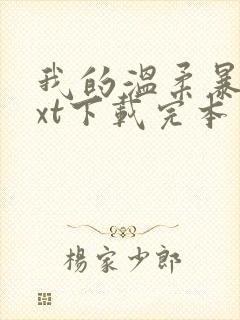 我的溫柔暴
xt下載完本
楊家少郎